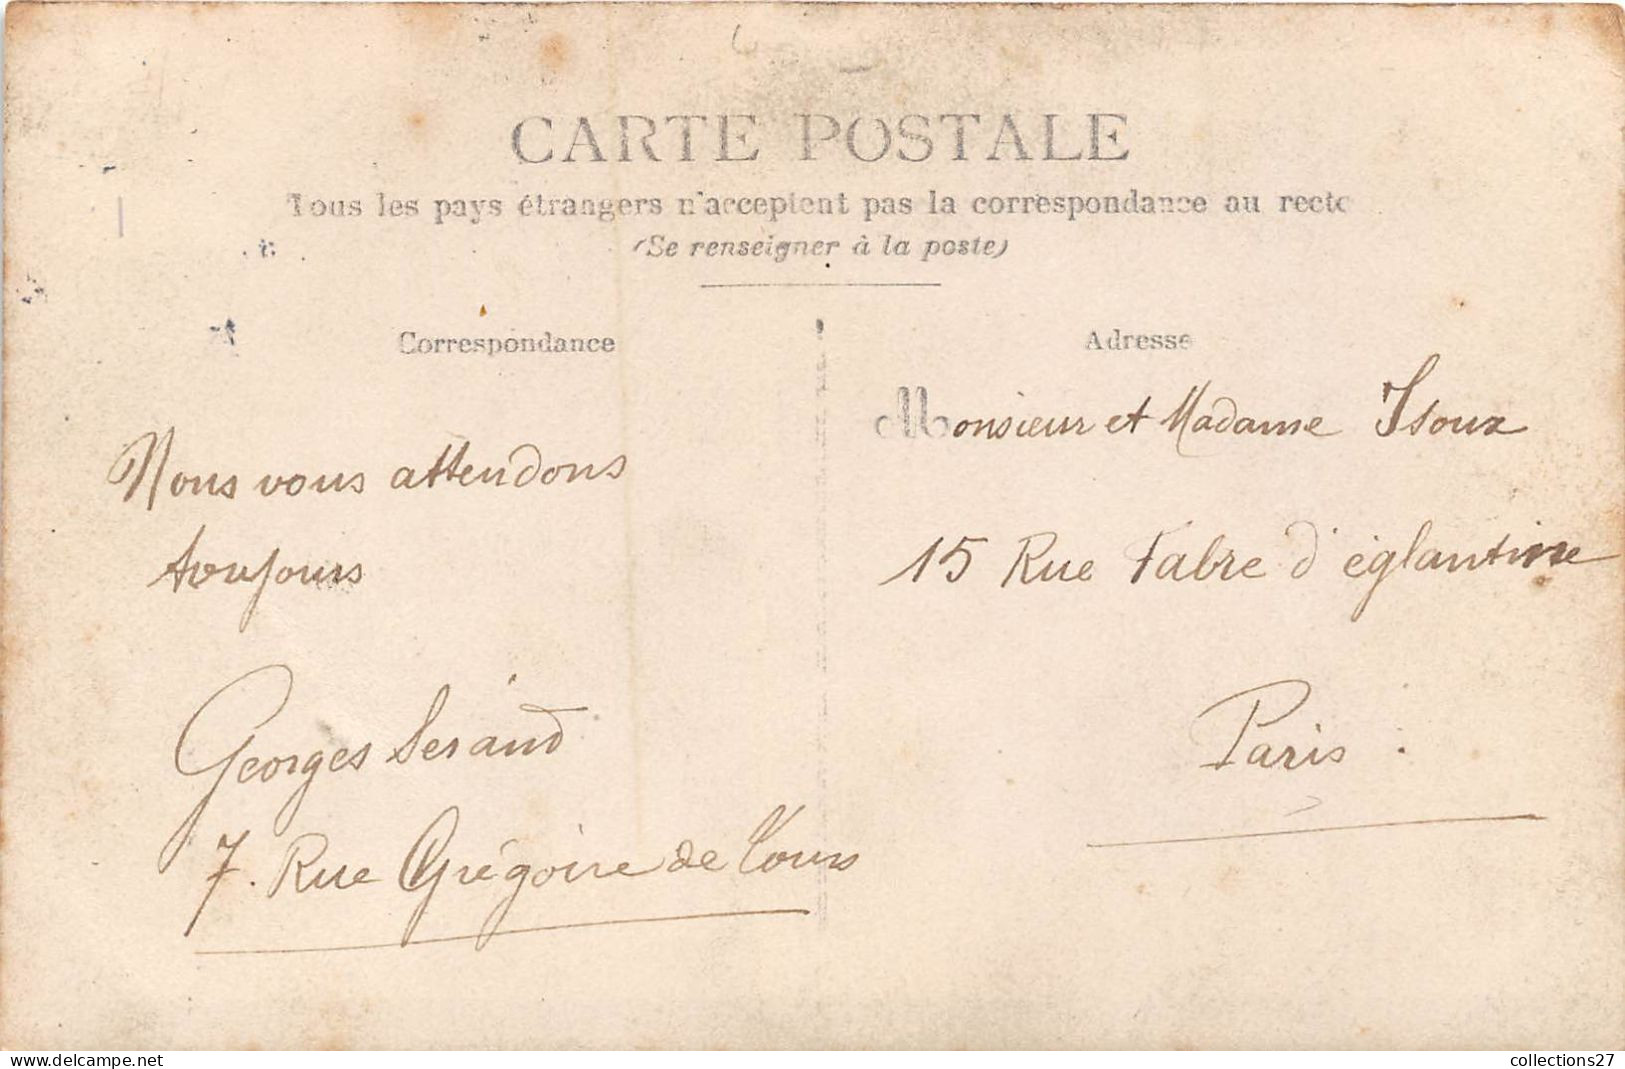 CARTE POSTALE
Tous les pays étrangers n'acceptent pas la correspondance au recto
(Se renseigner à la poste)
Correspondance
Nous vous attendons
toujours
Georges Seraud
7. Rue Grégoire de Tours
Adresse
Monsieur et Madame Isoux
15 Rue Fabre d'églantine
Paris :
delcampe.net
collections27